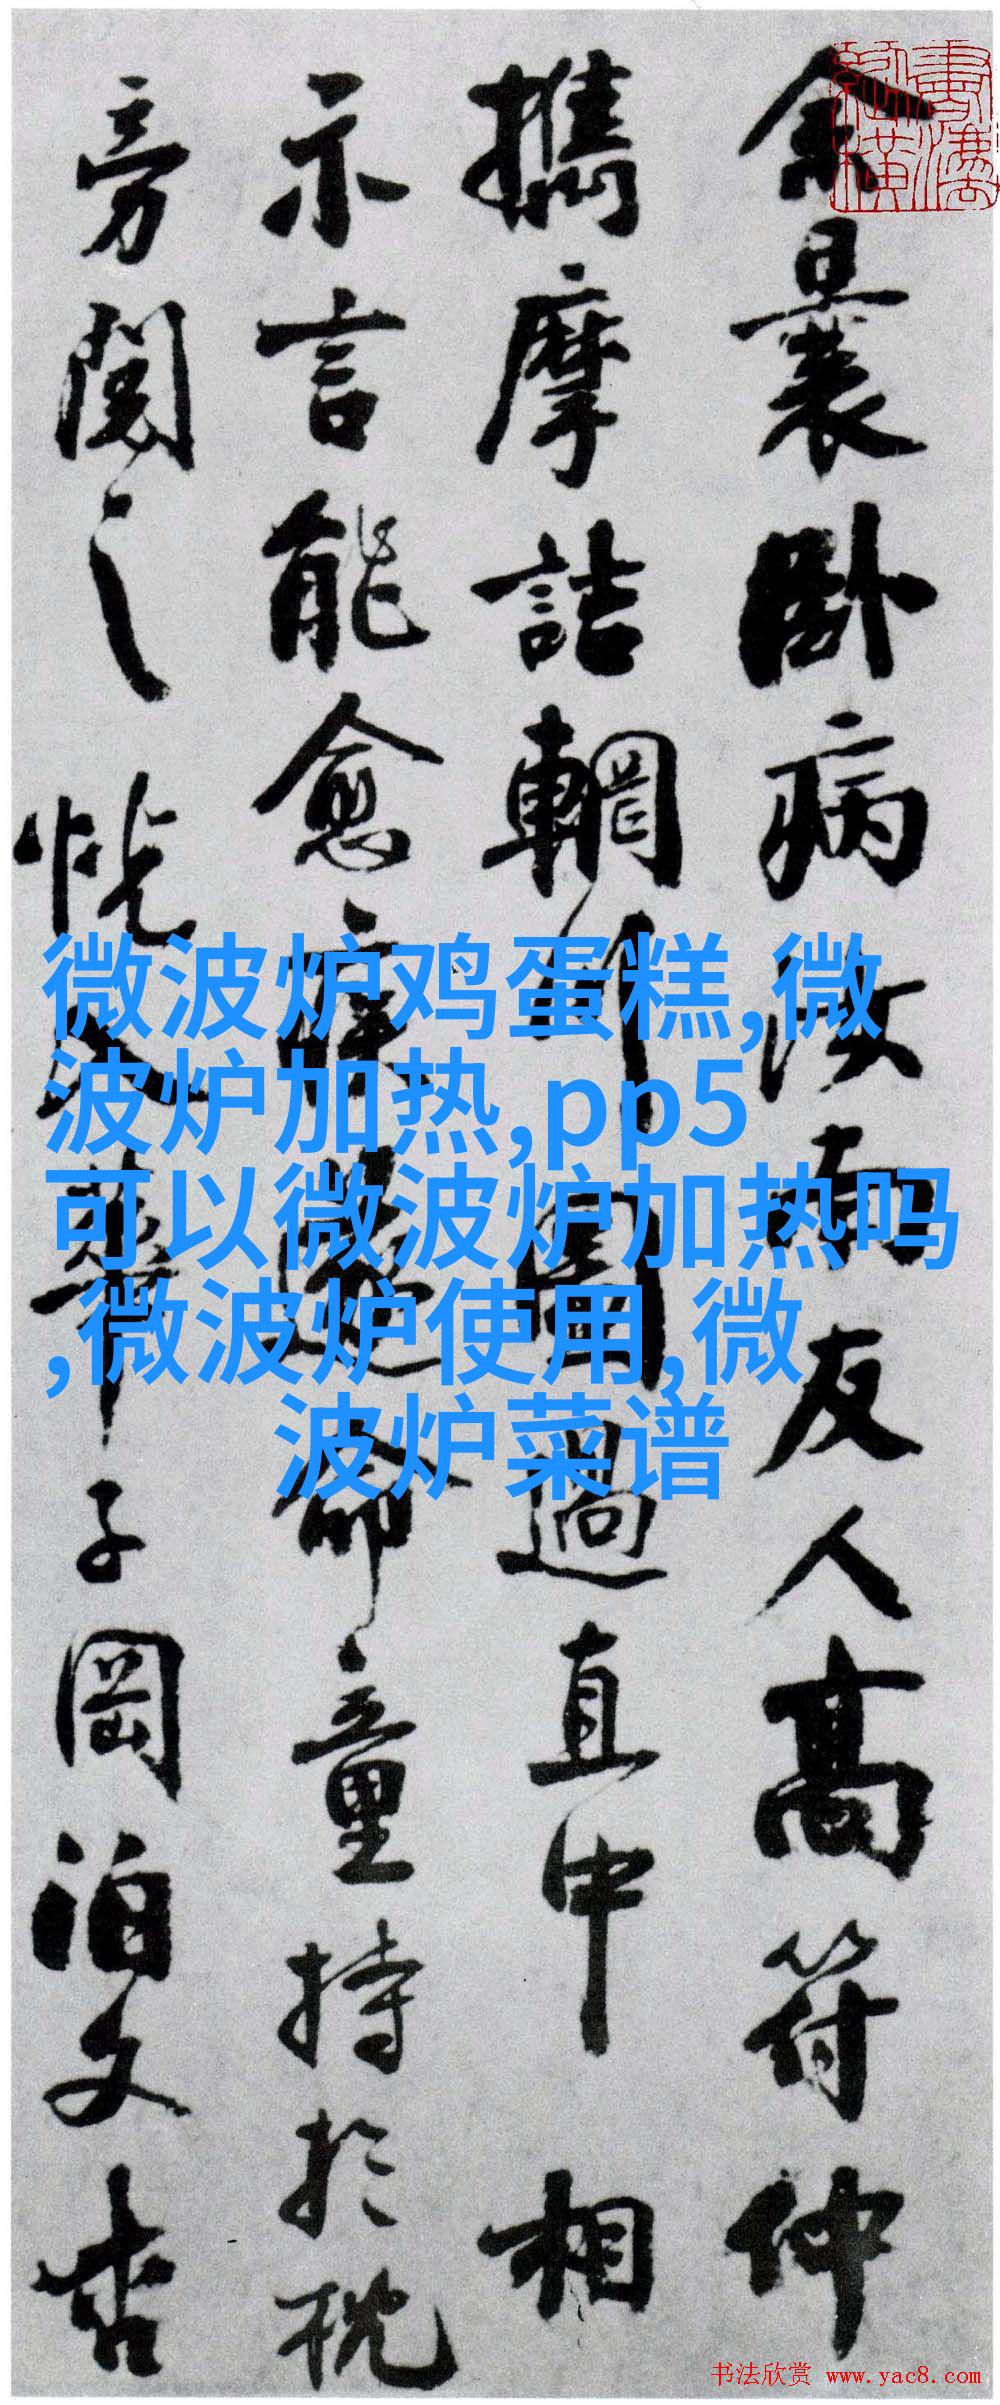 余曩卧病汝南友人高符仲
攜摩詰輞川圖過直中相
示言能愈疾遂命童持於枕
旁閱之恍入華子岡泊文杏
微波炉鸡蛋糕,微
波炉加热,pp5
可以微波炉加热吗
,微波炉使用,微
波炉菜谱
书法欣赏 www.yac8.com